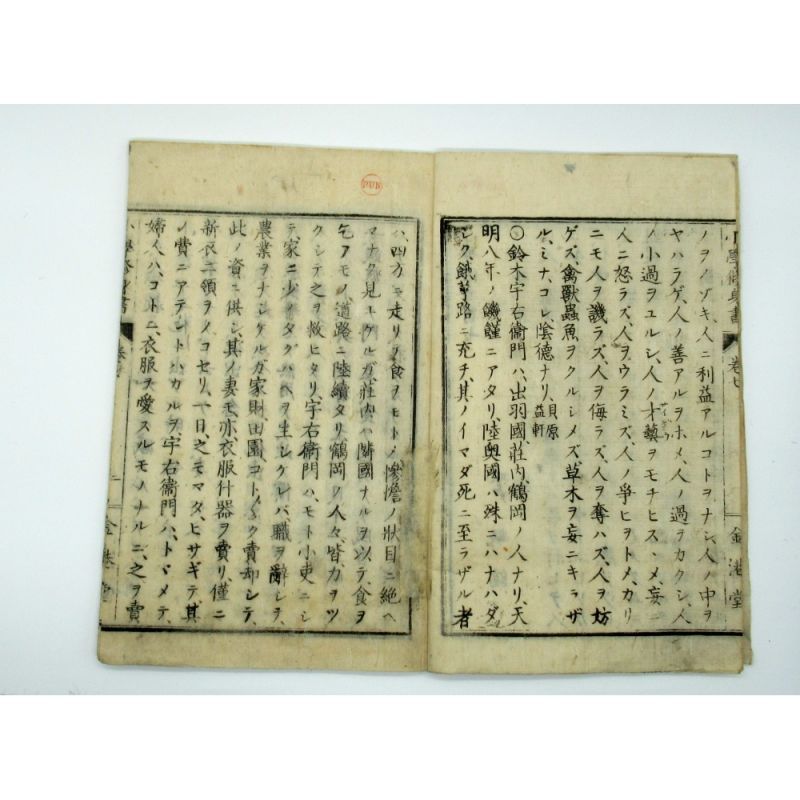 小學修身書 卷七 金港堂
ノヲノゾキ、人ニ利益アルコトヲナシ、人ノ中ヲ
ヤハラゲ、人ノ善アルヲホメ、人ノ過ヲカクシ、人
ノ小過ヲユルシ、人ノ才藝ヲモチヒスヽメ、妄ニ
人ニ怒ラズ、人ヲウラミズ、人ノ爭ヒヲトメ、カリ
ニモ人ヲ譏ラズ、人ヲ侮ラズ、人ヲ奪ハズ、人ヲ妨
ゲズ、禽獸蟲魚ヲクルシメズ、草木ヲ妄ニキラザ
ル、ミナ、コレ、陰德ナリ、貝原益軒
○鈴木宇右衞門ハ、出羽國、莊内、鶴岡ノ人ナリ、天
明八年ノ饑饉ニアタリ、陸奥國ハ殊ニハナハダ
シク、餓莩路ニ充チ、其ノイマダ死ニ至ラザル者
ハ、四方ニ走リテ食ヲモトメ、慘憺ノ狀目ニ絶ヘ
マナク見モケルガ、莊内ハ隣國ナルヲ以テ、食ヲ
乞フモノ、道路ニ陸續タリ、鶴岡ノ人々、皆、力ヲツ
クシテ之ヲ救ヒタリ、宇右衞門ハ、モト小吏ニシ
テ、家ニ少シノタクハヘヲ生シケレバ、職ヲ辭シテ、
農業ヲナシケルガ、家財、田園、コト〲ク賣却シテ、
此ノ資ニ供シ、其ノ妻モ亦衣服什器ヲ賣リ、僅ニ
新衣二領ヲノコセリ、一日、之モマタ、ヒサギテ、其
ノ費ニアテントハカルヲ、宇右衞門ハ、トヾメテ、
婦人ハ、コトニ、衣服ヲ愛スルモノナルニ、之ヲ賣
小學修身書 卷七 二 金港堂
PUB